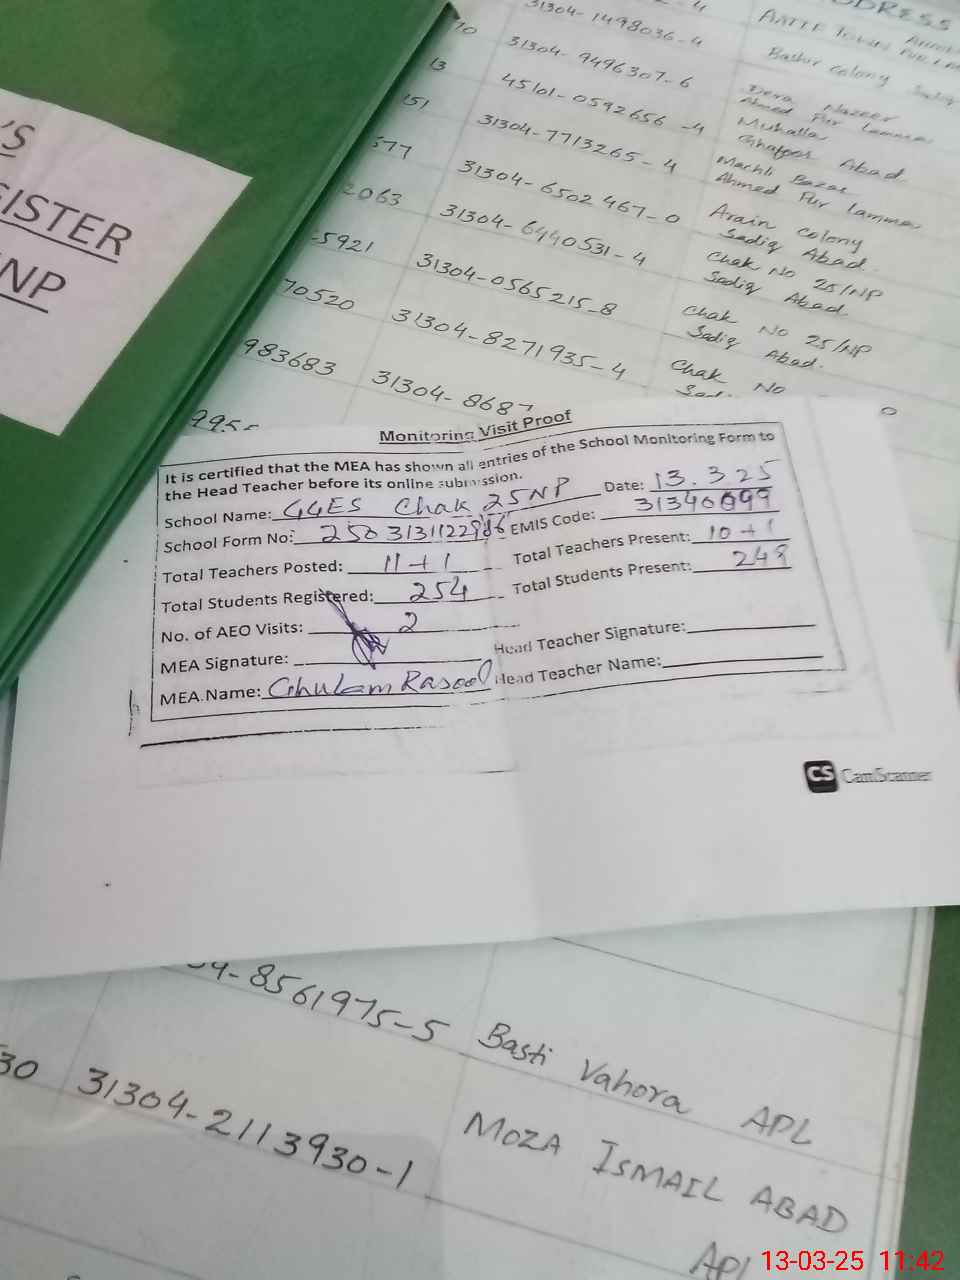 DRESS
31304-1498036-4
31304-9496307-6
Bashir colony Sadiq
13
45101-0592656-4
Dera Nazeer
Ahmed Pur lamma
151
31304-7713265-4
Muhalla
Ghafoor Abad
577
31304-6502467-0
Machli Bazar
Ahmed Pur lamma
2063
31304-6440531-4
Arain colony
Sadiq Abad.
-5921
31304-0565215-8
Chak No 25/NP
Sadiq Abad
70520
31304-8271935-4
Chak No 25/NP
Sadiq Abad.
983683
31304-8687
Chak No
'S
ISTER
NP
Monitoring Visit Proof
It is certified that the MEA has shown all entries of the School Monitoring Form to
the Head Teacher before its online submission.
School Name: GGES Chak 25NP Date: 13.3.25
School Form No: EMIS Code:
Total Teachers Posted: 11+1 Total Teachers Present: 10+1
Total Students Registered: 254 Total Students Present: 248
No. of AEO Visits: 2
MEA Signature: Head Teacher Signature:
MEA Name: Ghulam Rasool Head Teacher Name:
CS CamScanner
04-8561975-5 Basti Vahora APL
30 31304-2113930-1 MOZA ISMAIL ABAD
APL
13-03-25 11:42